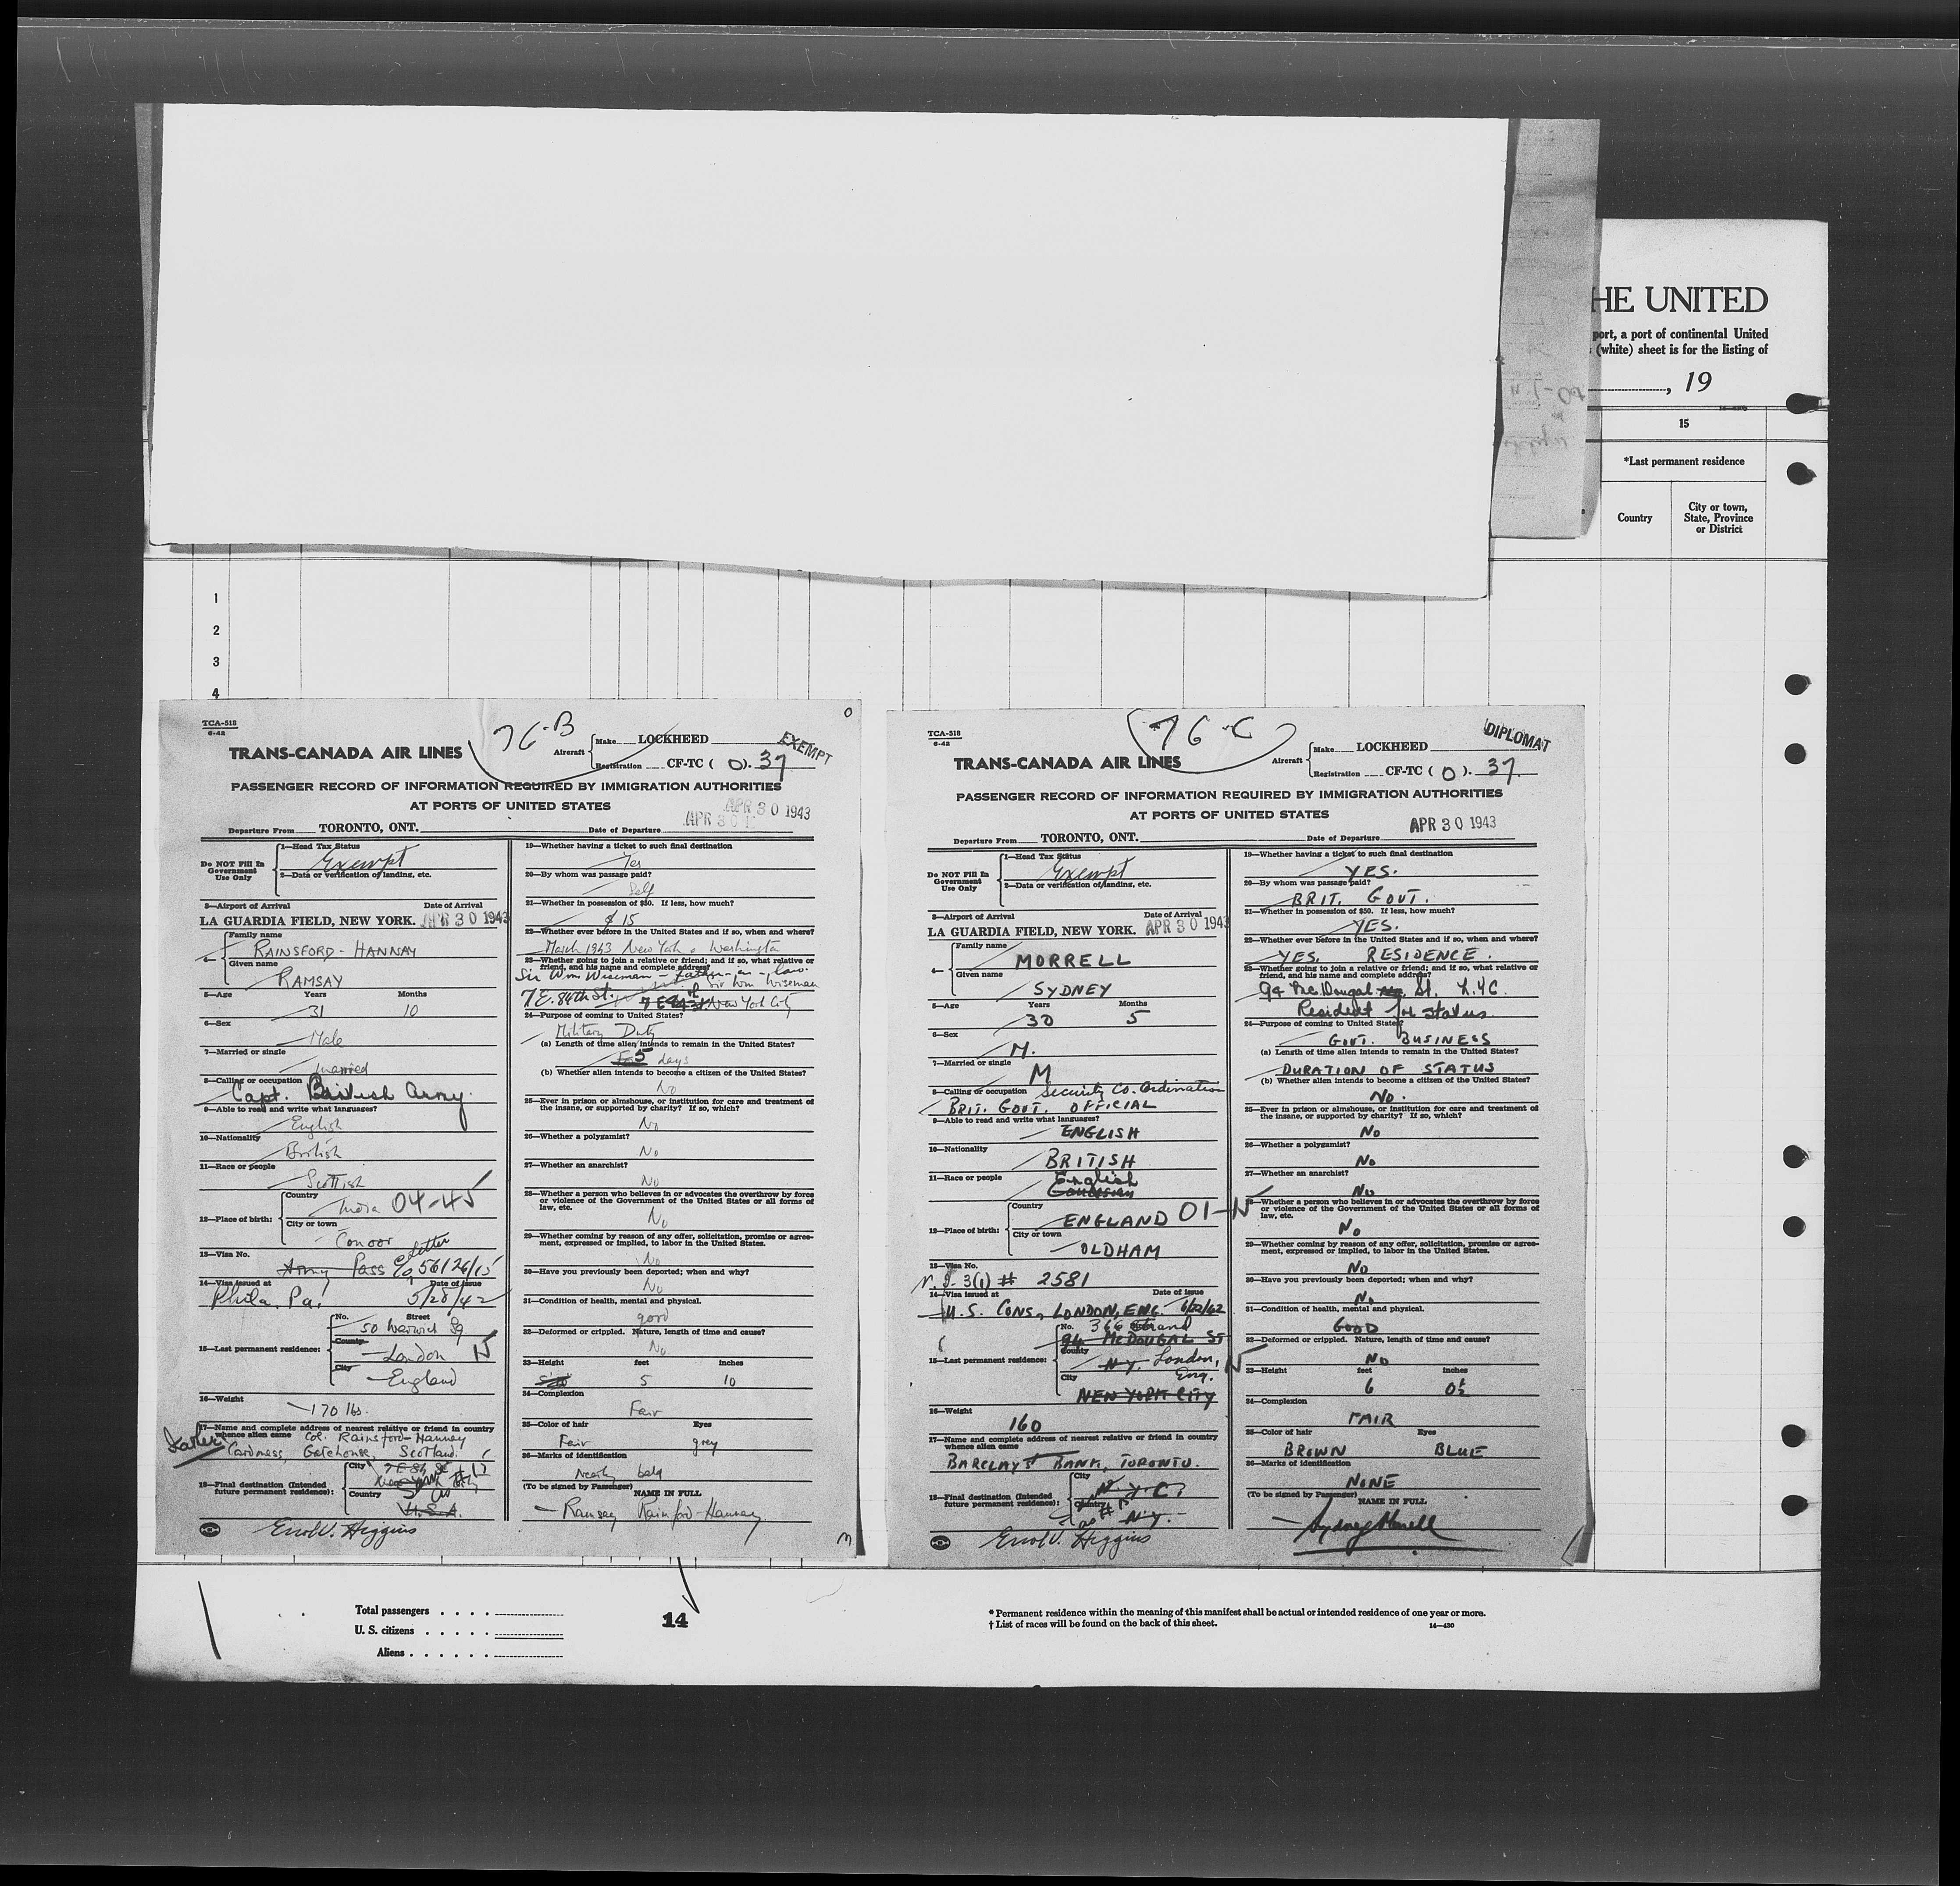 HE UNITED
port, a port of continental United
(white) sheet is for the listing of
, 19
15
*Last permanent residence
Country
City or town,
State, Province
or District
1
2
3
4
TCA-518
6-42
76-B
0
EXEMPT
TRANS-CANADA AIR LINES
Aircraft
Make LOCKHEED
Registration CF-TC ( O ). 37
PASSENGER RECORD OF INFORMATION REQUIRED BY IMMIGRATION AUTHORITIES
AT PORTS OF UNITED STATES
APR 30 1943
APR 30
Departure From TORONTO, ONT. Date of Departure
Do NOT Fill In
Government
Use Only
1—Head Tax Status
Exempt
2—Data or verification of landing, etc.
3—Airport of Arrival Date of Arrival
LA GUARDIA FIELD, NEW YORK. APR 30 1943
4—
Family name
RAINSFORD-HANNAY
Given name
RAMSAY
5—Age Years Months
31 10
6—Sex
Male
7—Married or single
Married
8—Calling or occupation
Capt. British Army.
9—Able to read and write what languages?
English
10—Nationality
British
11—Race or people
Scottish
12—Place of birth:
Country
India 04-45
City or town
Conoor
13—Visa No.
Army Pass c/o letter 56126/15
14—Visa issued at Date of Issue
Phila. Pa. 5/28/42
15—Last permanent residence:
No. Street
50 Warwick Sq
County
London N
City
England
16—Weight
170 lbs.
17—Name and complete address of nearest relative or friend in country
whence alien came Col. Rainsford-Hannay
Father Cardness, Gatehouse, Scotland.
18—Final destination (Intended
future permanent residence):
City
7 E 84 St
New York City
Country
U.S.A.
Errol V. Higgins
19—Whether having a ticket to such final destination
Yes
20—By whom was passage paid?
Self
21—Whether in possession of $50. If less, how much?
$ 15
22—Whether ever before in the United States and if so, when and where?
March 1943 New York & Washington
23—Whether going to join a relative or friend; and if so, what relative or
friend, and his name and complete address?
Sir Wm Wiseman - Father-in-law.
Sir Wm Wiseman
7 E. 84th St. New York City
24—Purpose of coming to United States?
Military Duty
(a) Length of time alien intends to remain in the United States?
5 days
(b) Whether alien intends to become a citizen of the United States?
No
25—Ever in prison or almshouse, or institution for care and treatment of
the insane, or supported by charity? If so, which?
No
26—Whether a polygamist?
No
27—Whether an anarchist?
No
28—Whether a person who believes in or advocates the overthrow by force
or violence of the Government of the United States or all forms of
law, etc.
No
29—Whether coming by reason of any offer, solicitation, promise or agree-
ment, expressed or implied, to labor in the United States.
No
30—Have you previously been deported; when and why?
No
31—Condition of health, mental and physical.
good
32—Deformed or crippled. Nature, length of time and cause?
No
33—Height feet inches
5 10
34—Complexion
Fair
35—Color of hair Eyes
Fair grey
36—Marks of identification
Nearly bald
(To be signed by Passenger) NAME IN FULL
Ramsay Rainsford-Hannay
TCA-518
6-42
76-C
DIPLOMAT
TRANS-CANADA AIR LINES
Aircraft
Make LOCKHEED
Registration CF-TC ( O ). 37.
PASSENGER RECORD OF INFORMATION REQUIRED BY IMMIGRATION AUTHORITIES
AT PORTS OF UNITED STATES
Departure From TORONTO, ONT. Date of Departure APR 30 1943
Do NOT Fill In
Government
Use Only
1—Head Tax Status
Exempt
2—Data or verification of landing, etc.
3—Airport of Arrival Date of Arrival
LA GUARDIA FIELD, NEW YORK. APR 30 1943
4—
Family name
MORRELL
Given name
SYDNEY
5—Age Years Months
30 5
6—Sex
M.
7—Married or single
M
8—Calling or occupation Security Co. Ordination
BRIT. GOVT. OFFICIAL
9—Able to read and write what languages?
ENGLISH
10—Nationality
BRITISH
11—Race or people
English
12—Place of birth:
Country
ENGLAND 01-N
City or town
OLDHAM
13—Visa No.
3(1) # 2581
14—Visa issued at Date of Issue
U.S. CONS, LONDON, ENG. 6/22/42
15—Last permanent residence:
No. 366 Strand
94 McDOUGAL ST
County
N.Y. London, N
City Eng.
NEW YORK CITY
16—Weight
160
17—Name and complete address of nearest relative or friend in country
whence alien came
BARCLAYS BANK, TORONTO.
18—Final destination (Intended
future permanent residence):
City
N.Y.C.
Country
N.Y.
Errol V. Higgins
19—Whether having a ticket to such final destination
YES.
20—By whom was passage paid?
BRIT. GOVT.
21—Whether in possession of $50. If less, how much?
YES.
22—Whether ever before in the United States and if so, when and where?
YES. RESIDENCE.
23—Whether going to join a relative or friend; and if so, what relative or
friend, and his name and complete address?
94 McDougal St. N.Y.C.
Resident status
24—Purpose of coming to United States?
GOVT. BUSINESS
(a) Length of time alien intends to remain in the United States?
DURATION OF STATUS
(b) Whether alien intends to become a citizen of the United States?
No.
25—Ever in prison or almshouse, or institution for care and treatment of
the insane, or supported by charity? If so, which?
No
26—Whether a polygamist?
No
27—Whether an anarchist?
No
28—Whether a person who believes in or advocates the overthrow by force
or violence of the Government of the United States or all forms of
law, etc.
No
29—Whether coming by reason of any offer, solicitation, promise or agree-
ment, expressed or implied, to labor in the United States.
No
30—Have you previously been deported; when and why?
No
31—Condition of health, mental and physical.
GOOD
32—Deformed or crippled. Nature, length of time and cause?
No
33—Height feet inches
6 0½
34—Complexion
FAIR
35—Color of hair Eyes
BROWN BLUE
36—Marks of identification
NONE
(To be signed by Passenger) NAME IN FULL
Sydney Morrell
Total passengers
U. S. citizens
Aliens
14
* Permanent residence within the meaning of this manifest shall be actual or intended residence of one year or more.
† List of races will be found on the back of this sheet.
14—430